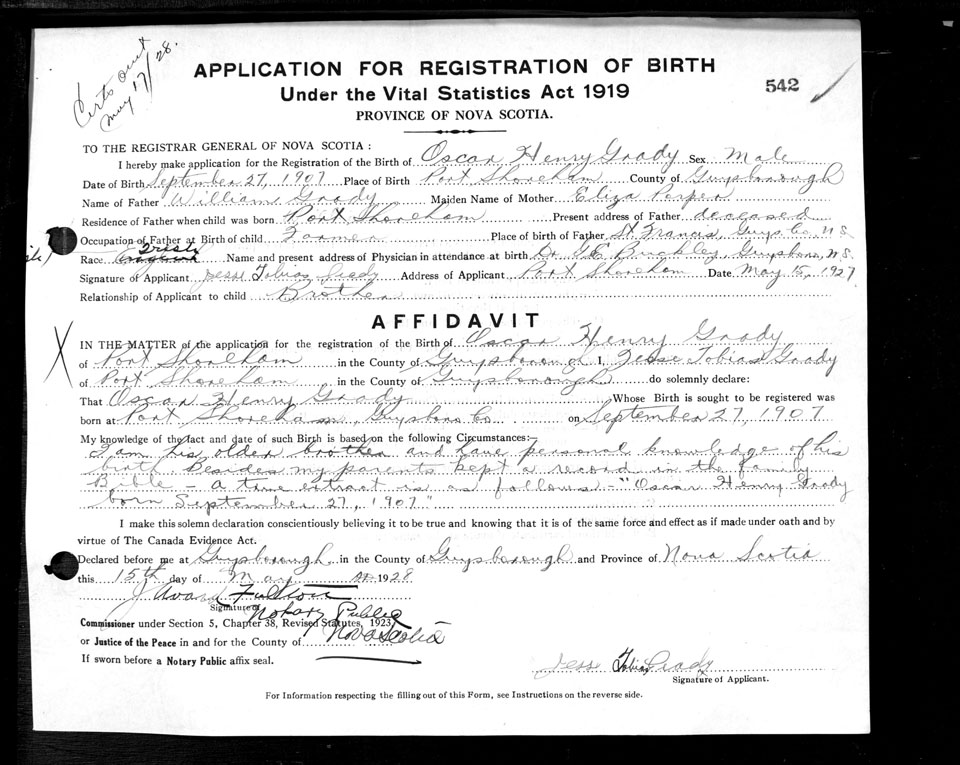 Certs out
May 17/28.
APPLICATION FOR REGISTRATION OF BIRTH
Under the Vital Statistics Act 1919
542
PROVINCE OF NOVA SCOTIA.
TO THE REGISTRAR GENERAL OF NOVA SCOTIA :
I hereby make application for the Registration of the Birth of Oscar Henry Grady Sex Male
Date of Birth September 27, 1907 Place of Birth Port Shoreham County of Guysborough
Name of Father William Grady Maiden Name of Mother Eliza
Residence of Father when child was born Port Shoreham Present address of Father deceased
Occupation of Father at Birth of child Farmer Place of birth of Father St. Francis, Guys. Co., N.S.
Race Irish Name and present address of Physician in attendance at birth Dr. G.E. Buckley, Guysboro, N.S.
Signature of Applicant Jesse Tobias Grady Address of Applicant Port Shoreham Date May 15, 1927
Relationship of Applicant to child Brother
AFFIDAVIT
X
IN THE MATTER of the application for the registration of the Birth of Oscar Henry Grady
of Port Shoreham in the County of Guysborough I, Jesse Tobias Grady
of Port Shoreham, in the County of Guysborough do solemnly declare:
That Oscar Henry Grady Whose Birth is sought to be registered was
born at Port Shoreham, Guysboro Co on September 27, 1907
My knowledge of the fact and date of such Birth is based on the following Circumstances:-
I am his older brother and have personal knowledge of his
birth. Besides my parents kept a record in the family
Bible - A true extract is as follows - "Oscar Henry Grady
born September 27, 1907"
I make this solemn declaration conscientiously believing it to be true and knowing that it is of the same force and effect as if made under oath and by
virtue of The Canada Evidence Act.
Declared before me at Guysborough in the County of Guysborough and Province of Nova Scotia
this 15th day of May A. 1928
J Ward Fulton
Signature of Notary Public
Commissioner under Section 5, Chapter 38, Revised Statutes, 1923
or Justice of the Peace in and for the County of Nova Scotia
If sworn before a Notary Public affix seal.
Jesse Tobias Grady
Signature of Applicant.
For Information respecting the filling out of this Form, see Instructions on the reverse side.